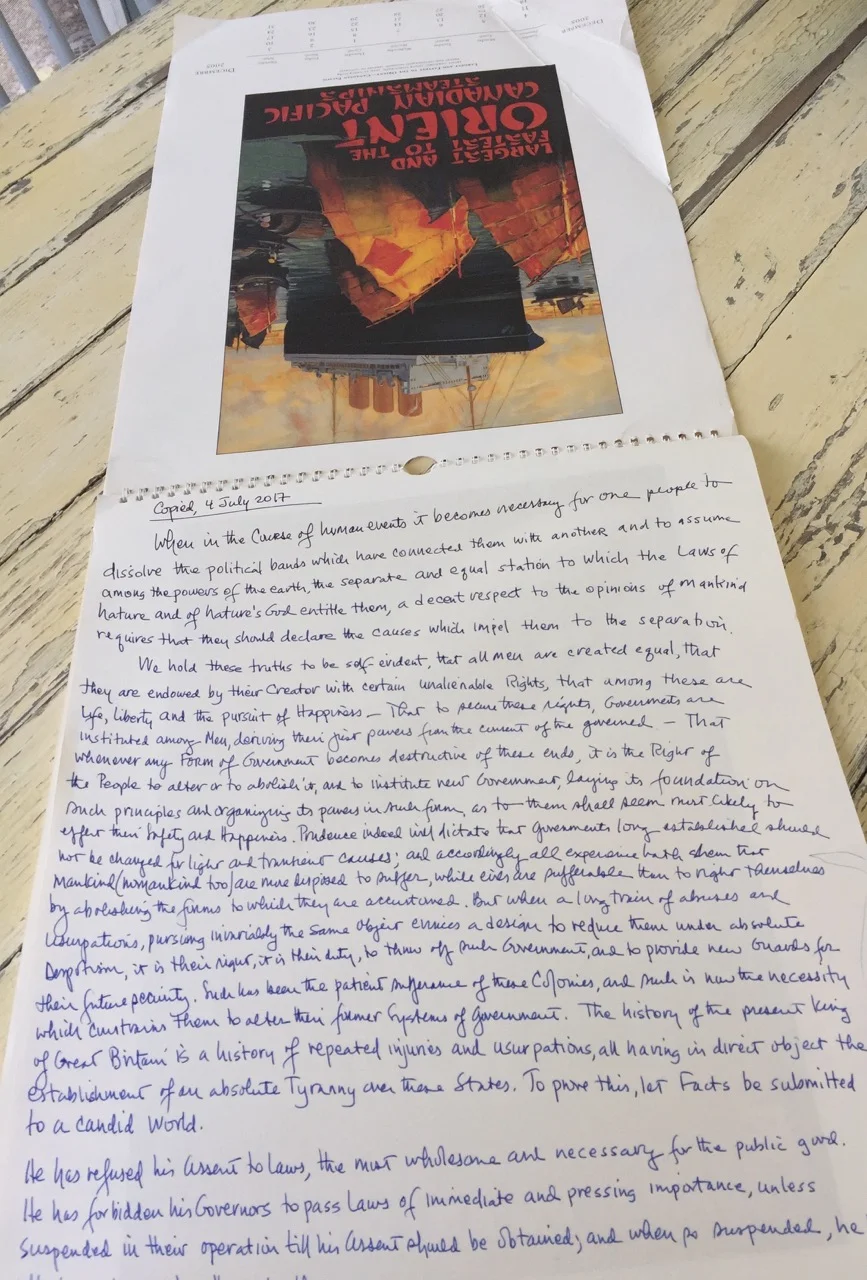 DECEMBER
2005
DÉCEMBRE
2005
LARGEST AND
FASTEST TO THE
ORIENT
CANADIAN PACIFIC
STEAMSHIPS
Copied, 4 July 2017
When in the Course of human events it becomes necessary for one people to
dissolve the political bands which have connected them with another and to assume
among the powers of the earth, the separate and equal station to which the Laws of
Nature and of Nature's God entitle them, a decent respect to the opinions of mankind
requires that they should declare the causes which impel them to the separation.
We hold these truths to be self-evident, that all men are created equal, that
they are endowed by their Creator with certain unalienable Rights, that among these are
Life, Liberty and the pursuit of Happiness — That to secure these rights, Governments are
instituted among Men, deriving their just powers from the consent of the governed — That
whenever any Form of Government becomes destructive of these ends, it is the Right of
the People to alter or to abolish it, and to institute new Government, laying its foundation on
such principles and organizing its powers in such form, as to them shall seem most likely to
effect their Safety and Happiness. Prudence indeed will dictate that Governments long established should
not be changed for light and transient causes; and accordingly all experience hath shewn that
Mankind (womankind too) are more disposed to suffer, while evils are sufferable than to right themselves
by abolishing the forms to which they are accustomed. But when a long train of abuses and
usurpations, pursuing invariably the same Object evinces a design to reduce them under absolute
Despotism, it is their right, it is their duty, to throw off such Government, and to provide new Guards for
their future security. Such has been the patient sufferance of these Colonies, and such is now the necessity
which constrains them to alter their former Systems of Government. The history of the present King
of Great Britain is a history of repeated injuries and usurpations, all having in direct object the
establishment of an absolute Tyranny over these States. To prove this, let Facts be submitted
to a candid World.
He has refused his Assent to Laws, the most wholesome and necessary for the public good.
He has forbidden his Governors to pass Laws of immediate and pressing importance, unless
suspended in their operation till his Assent should be obtained; and when so suspended, he